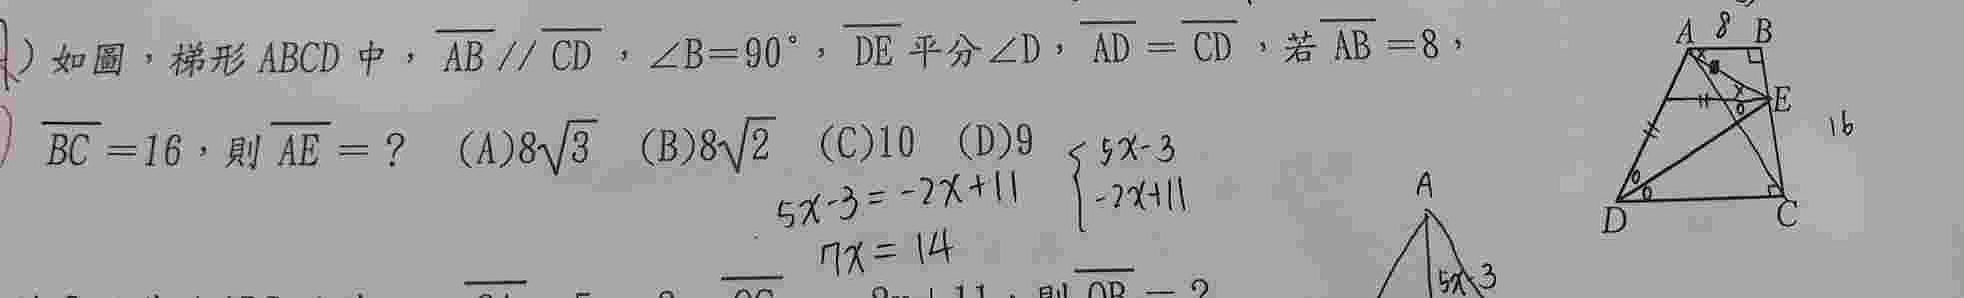 ) 如圖，梯形 ABCD 中，AB // CD，∠B=90°，DE 平分∠D，AD = CD，若 AB =8，
BC =16，則 AE =？ (A)8√3 (B)8√2 (C)10 (D)9
5x-3
-2x+11
5x-3=-2x+11
7x=14
A 8 B
E
16
D C
A
5x-3